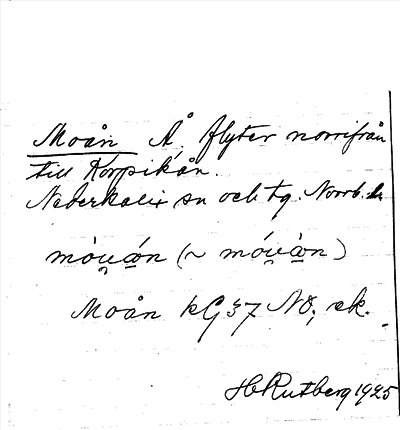 Moån Å, flyter norrifrån
till Korpikån.
Nederkalix sn och tg. Norrb. l.
Moån kG37 NO; ek.
H Rutberg 1925